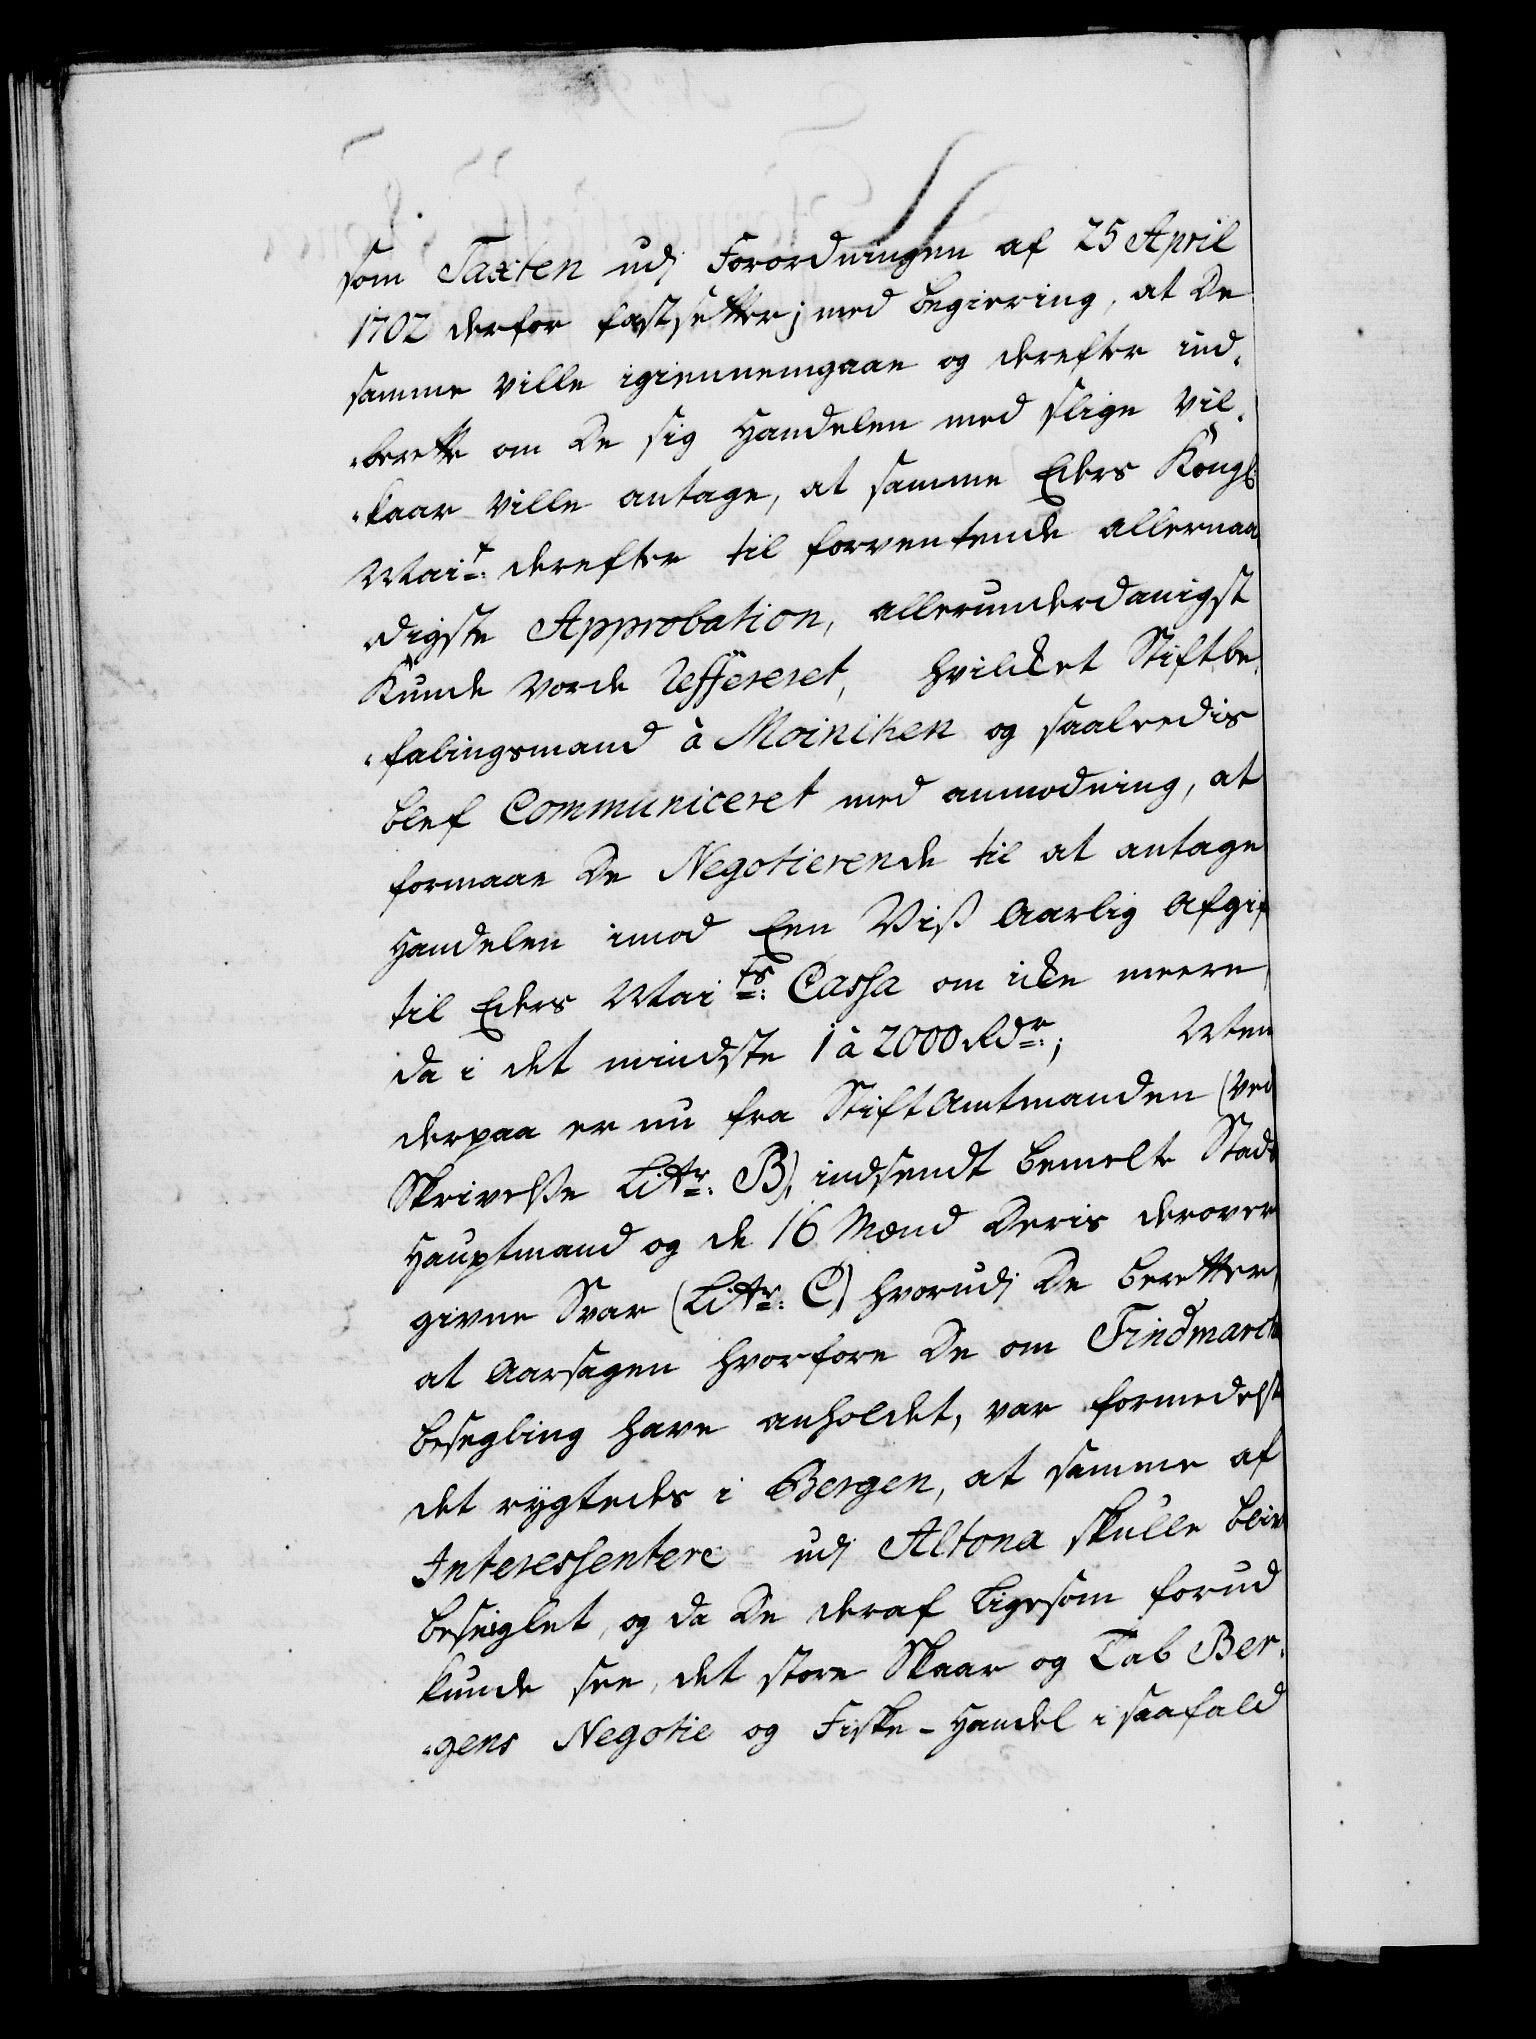 som Taxten udj Forordningen af 25 April
1702 derfor fastsetter; med begiering, at De
samme ville igiennemgaae og derefter ind-
-berette om De sig Handelen med slige Vil-
-kaar ville antage, at samme Eders Kongl:
Mait: derefter til forventende allernaa
digste Approbation, allerunderdanigst
Kunde vorde Refféreret, hvilcket Stiftbe-
-falingsmand à Moiniken og saaledis
blef Communiceret med anmodning, at
formaae De Negotierende til at antage
Handelen imod Een Viss Aarlig Afgif
til Eders Maits: Cassa om icke meere
da i det mindste 1 à 2000 Rdr:; Men
derpaa er nu fra StiftAmtmanden (ved
Skrivelse Littr: B), indsendt bemelte Stads
Hauptmand og de 16 Mænd Deris derover
givne Svar (Littr: C) hvorudj De beretter,
at Aarsagen hvorfore De om Findmarch
besegling have anholdet, var formedelst
det rygtedes i Bergen, at samme af
Interessentere udj Altona skulle blive
beseiglet, og da De deraf ligesom forud
kunde see, det store Skaar og Tab Ber-
-gens Negotie og Fiske-Handel i saafald